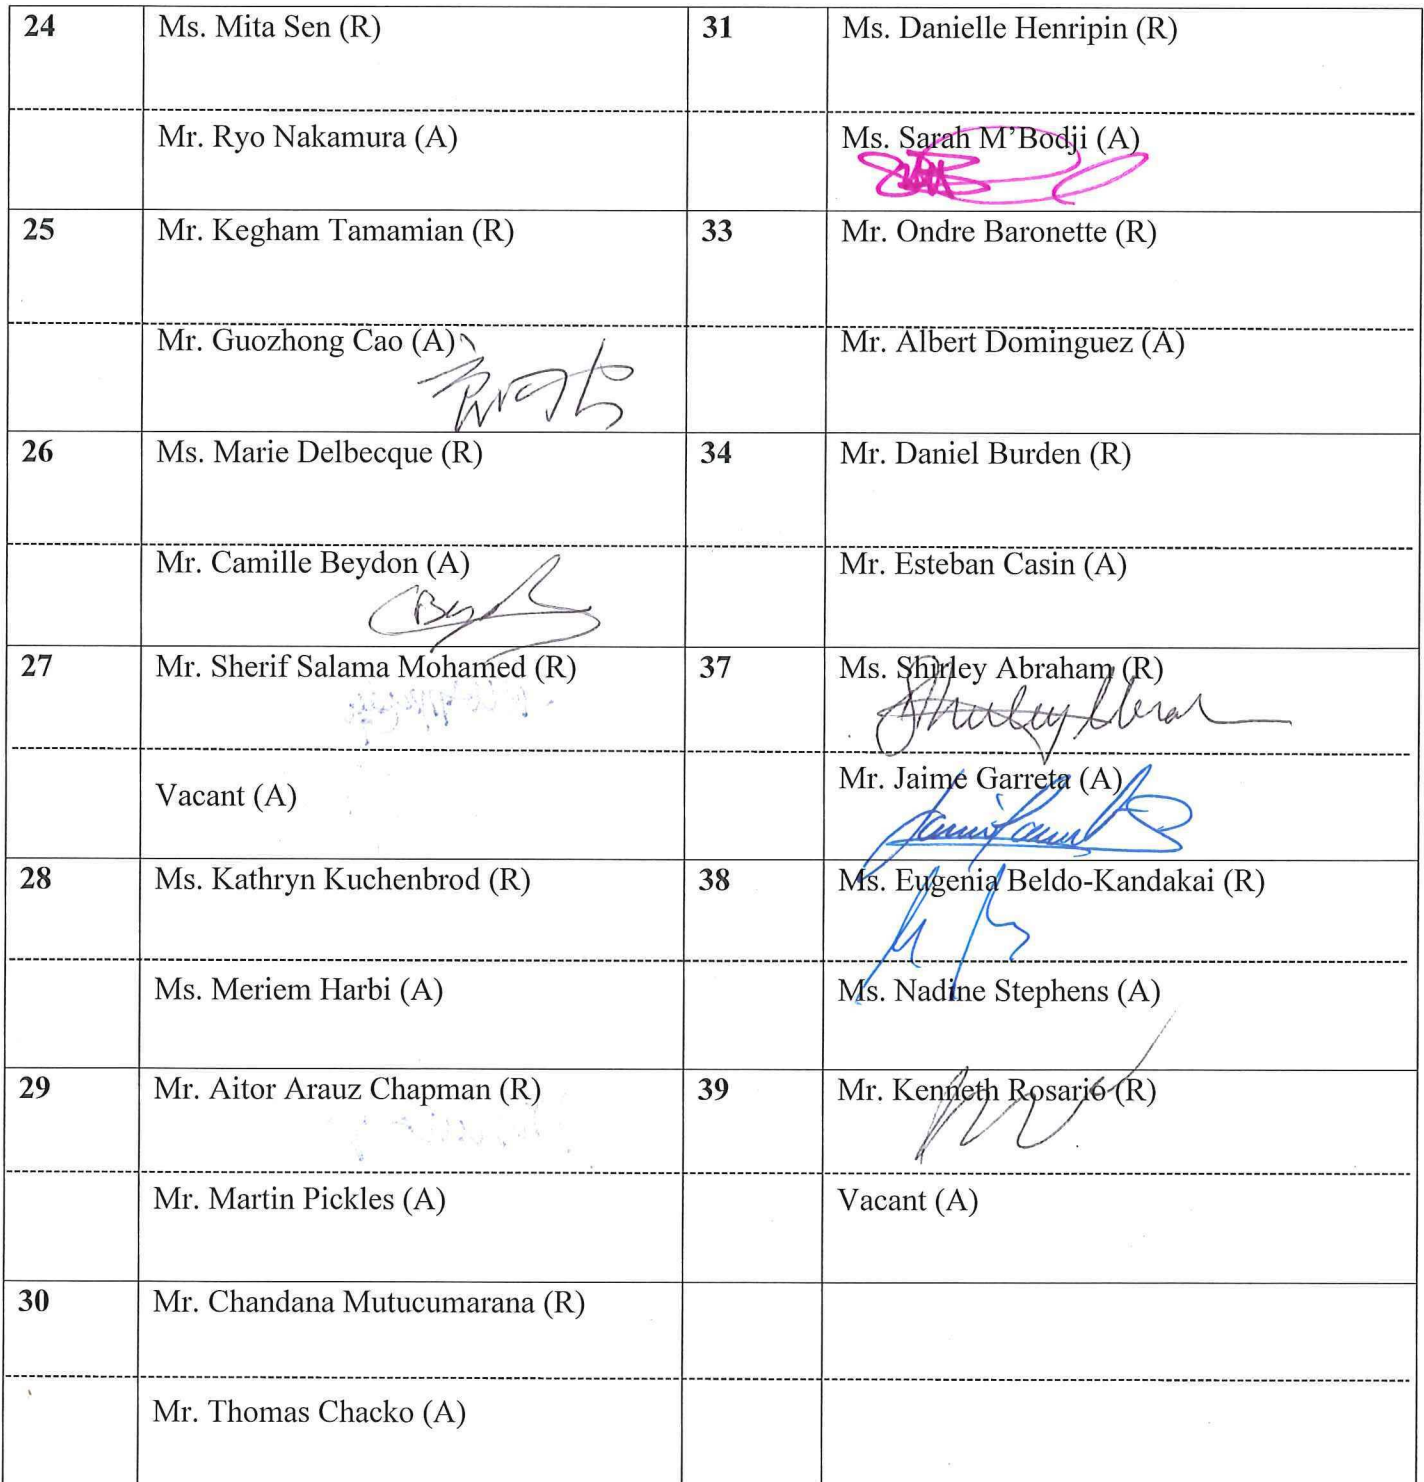 24 Ms. Mita Sen (R) 31 Ms. Danielle Henripin (R)
Mr. Ryo Nakamura (A) Ms. Sarah M’Bodji (A)
25 Mr. Kegham Tamamian (R) 33 Mr. Ondre Baronette (R)
Mr. Guozhong Cao (A) Mr. Albert Dominguez (A)
26 Ms. Marie Delbecque (R) 34 Mr. Daniel Burden (R)
Mr. Camille Beydon (A) Mr. Esteban Casin (A)
27 Mr. Sherif Salama Mohamed (R) 37 Ms. Shirley Abraham (R)
Vacant (A) Mr. Jaime Garreta (A)
28 Ms. Kathryn Kuchenbrod (R) 38 Ms. Eugenia Beldo-Kandakai (R)
Ms. Meriem Harbi (A) Ms. Nadine Stephens (A)
29 Mr. Aitor Arauz Chapman (R) 39 Mr. Kenneth Rosario (R)
Mr. Martin Pickles (A) Vacant (A)
30 Mr. Chandana Mutucumarana (R)
Mr. Thomas Chacko (A)